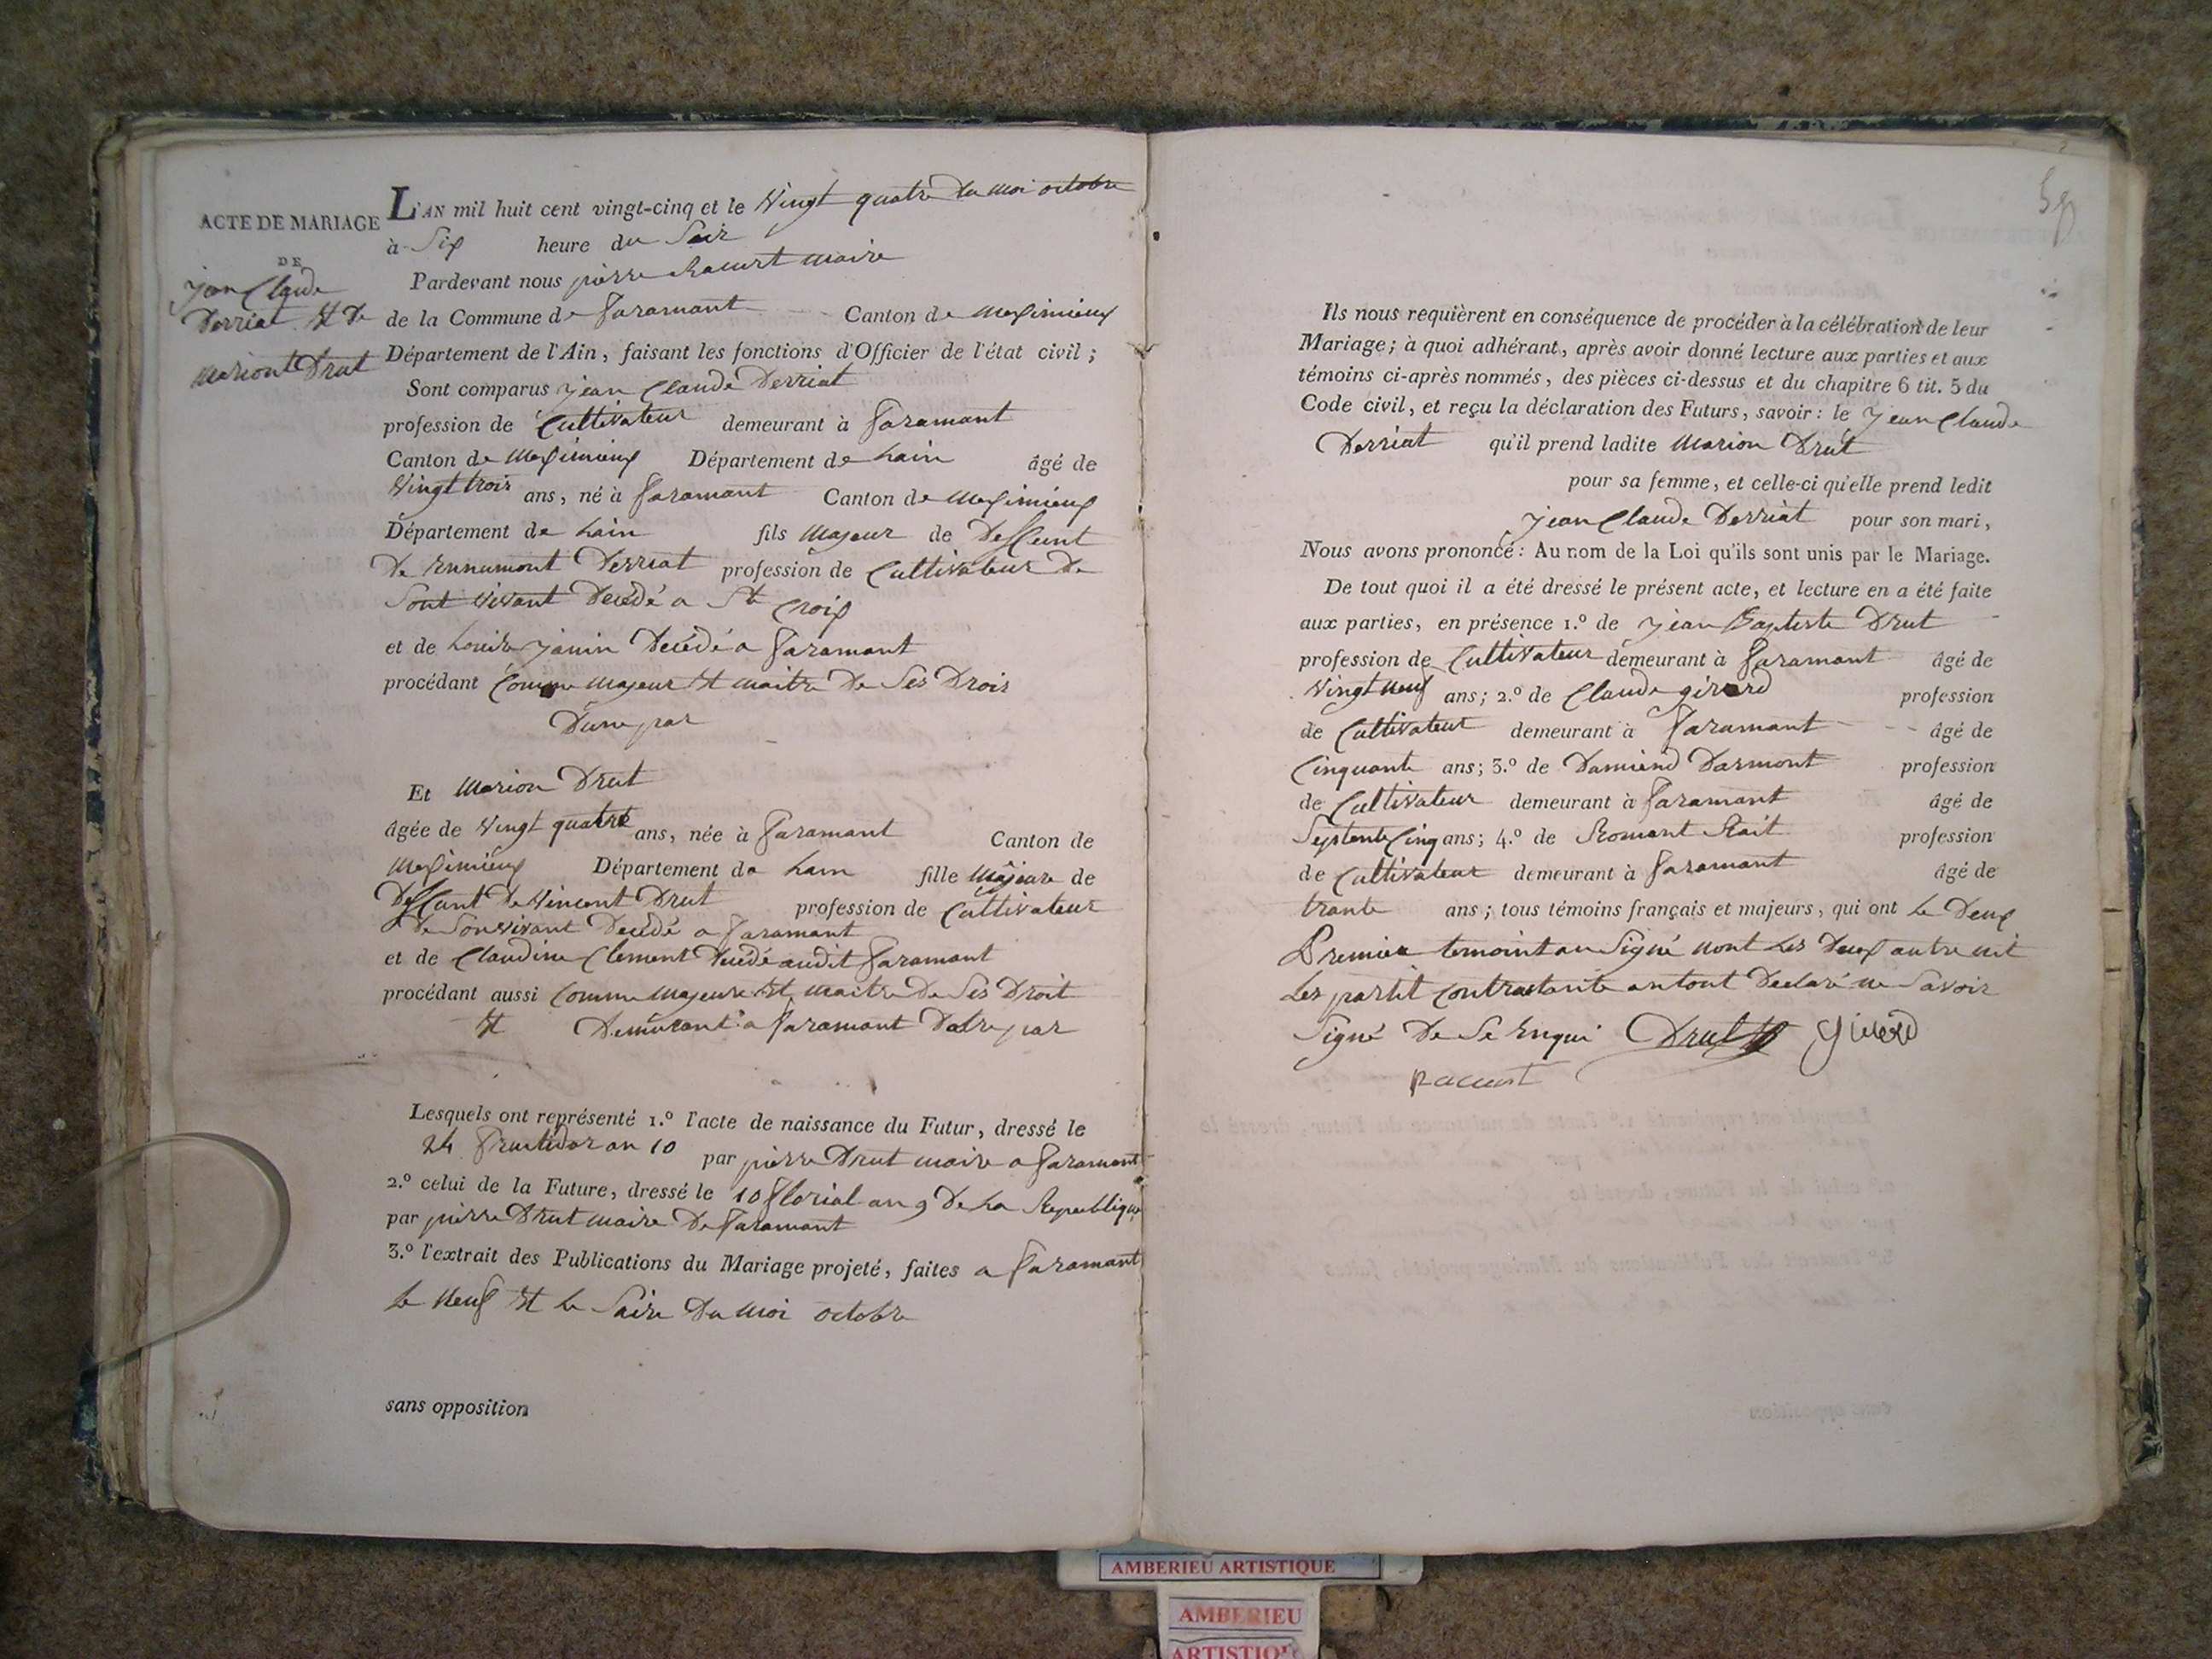 ACTE DE MARIAGE
DE
jean Claude
Derriat Et De
Mariont Drut
L'AN mil huit cent vingt-cinq et le Vingt quatre du moi octobre
à Six heure du Soir
Pardevant nous pierre Racurt maire
de la Commune de faramant Canton de Meximieux
Département de l'Ain, faisant les fonctions d'Officier de l'état civil ;
Sont comparus jean Claude Derriat
profession de Cultivateur demeurant à faramant
Canton de Meximieux Département de Lain âgé de
Vingt trois ans, né à faramant Canton de Meximieux
Département de Lain fils Majeur de
De Derriat profession de Cultivateur De
Sont vivant Decédé a St Croix
et de Louise janin Decédé a faramant
procédant Comme Majeur Et maitre De Ses Drois
Dune par
Et Marion Drut
âgée de Vingt quatre ans, née à faramant Canton de
Meximieux Département de Lain fille Majeure de
De Vincent Drut profession de Cultivateur
De Son vivant Decédé a faramant
et de Claudine Clement Decédé audit faramant
procédant aussi Comme Majeure Et maitre De Ses Droit
Et Demeurant a faramant Datre par
Lesquels ont représenté 1.º l'acte de naissance du Futur, dressé le
24 fructidor an 10 par pierre Drut maire a faramant
2.º celui de la Future, dressé le 10 florial an 9 De La Republique
par pierre Drut maire De faramant
3.º l'extrait des Publications du Mariage projeté, faites a faramant
Le Neuf Et Le Saize Du Moi octobre
sans opposition
Ils nous requièrent en conséquence de procéder à la célébration de leur
Mariage ; à quoi adhérant, après avoir donné lecture aux parties et aux
témoins ci-après nommés, des pièces ci-dessus et du chapitre 6 tit. 5 du
Code civil, et reçu la déclaration des Futurs, savoir : le jean Claude
Derriat qu'il prend ladite Marion Drut
pour sa femme, et celle-ci qu'elle prend ledit
jean Claude Derriat pour son mari,
Nous avons prononcé : Au nom de la Loi qu'ils sont unis par le Mariage.
De tout quoi il a été dressé le présent acte, et lecture en a été faite
aux parties, en présence 1.º de jean Baptiste Drut
profession de Cultivateur demeurant à faramant âgé de
Vingt neuf ans ; 2.º de Claude girerd profession
de Cultivateur demeurant à faramant âgé de
Cinquante ans ; 3.º de Damiend Darmont profession
de Cultivateur demeurant à faramant âgé de
Septente Cinq ans ; 4.º de Romant profession
de Cultivateur demeurant à faramant âgé de
trante ans ; tous témoins français et majeurs, qui ont Le Deux
Premier temoint an Signé nont Les Deux autre nit
Les partit Contractante antout Declaré ne Savoir
Signé De Se Enqui Drut Girerd
Racurt
AMBERIEU ARTISTIQUE
AMBERIEU
ARTISTIQUE